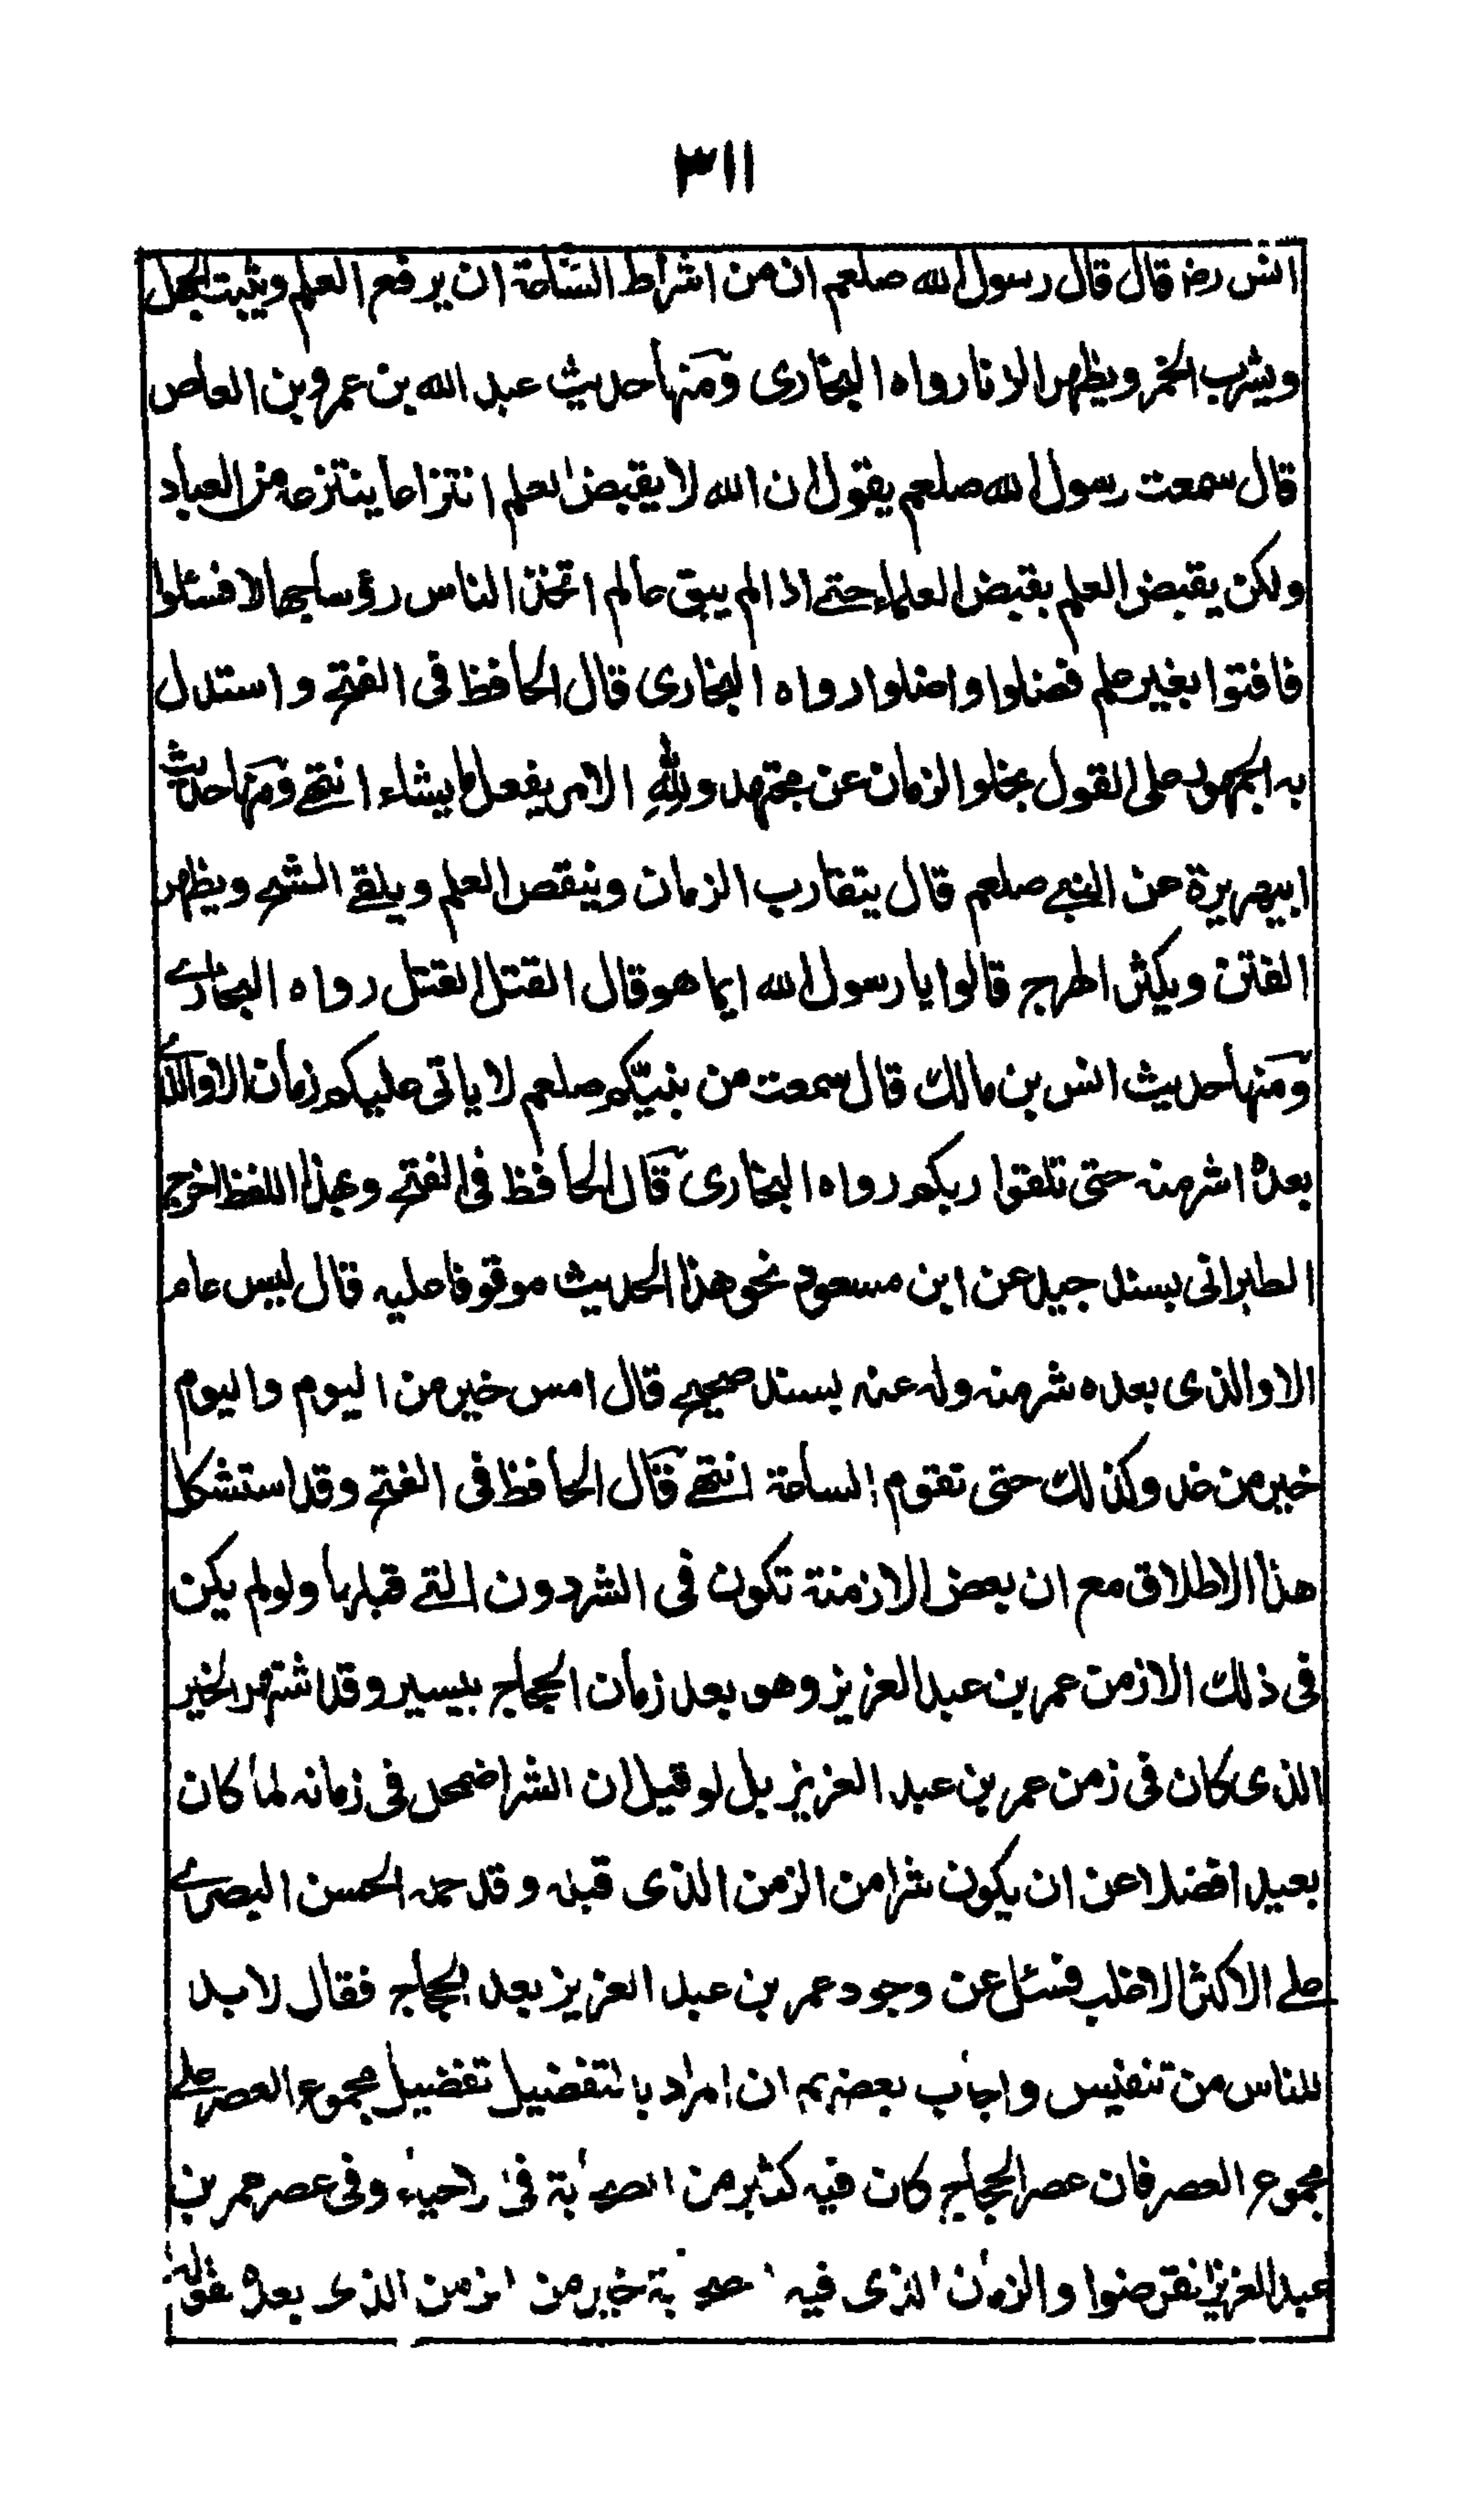 ٣١١
انس رضـ قال قال رسول الله صلعم ان من اشراط الساعة ان يرفع العلم ويثبت الجهل
ويشرب الخمر ويظهر الزنا رواه البخارى ومنها حديث عبد الله بن عمرو بن العاص
قال سمعت رسول الله صلعم يقول ان الله لا يقبض العلم انتزاعا ينتزعه من العباد
ولكن يقبض العلم بقبض العلماء حتى اذا لم يبق عالم اتخذ الناس رؤسا جهالا فسئلوا
فافتوا بغير علم فضلوا واضلوا رواه البخارى قال الحافظ فى الفتح واستدل
به الجمهور على القول بخلو الزمان عن مجتهد ولله الامر يفعل ما يشاء انتهى ومنها حديث
ابى هريرة عن النبى صلعم قال يتقارب الزمان وينقص العلم ويلقى الشح ويظهر
الفتن ويكثر الهرج قالوا يا رسول الله ايما هو قال القتل القتل رواه البخارى
ومنها حديث انس بن مالك قال سمعت من نبيكم صلعم لا ياتى عليكم زمان الا والذى
بعده اشر منه حتى تلقوا ربكم رواه البخارى قال الحافظ فى الفتح وبهذا اللفظ اخرج
الطبرانى بسند جيد عن ابن مسعود نحو هذا الحديث موقوفا عليه قال ليس عام
الا والذى بعده شر منه وله عنه بسند صحيح قال امس خير من اليوم واليوم
خير من غد وكذلك حتى تقوم الساعة انتهى قال الحافظ فى الفتح وقد استشكل
هذا الاطلاق مع ان بعض الازمنة تكون فى الشر دون التى قبلها ولو لم يكن
فى ذلك الا زمن عمر بن عبد العزيز وهو بعد زمان الحجاج بيسير وقد اشتهر الخير
الذى كان فى زمن عمر بن عبد العزيز بل لو قيل ان الشر اضمحل فى زمانه لما كان
بعيدا فضلا عن ان يكون شرا من الزمن الذى قبله وقد حمله الحسن البصرى
على الاكثر الاغلب فسئل عن وجود عمر بن عبد العزيز بعد الحجاج فقال لا بد
للناس من تنفيس واجاب بعضهم ان المراد بالتفضيل تفضيل مجموع العصر على
مجموع العصر فان عصر الحجاج كان فيه كثير من الصحابة فى الاحياء وفى عصر عمر بن
عبد العزيز انقرضوا والزمان الذى فيه الصحابة خير من الزمن الذى بعده لقوله